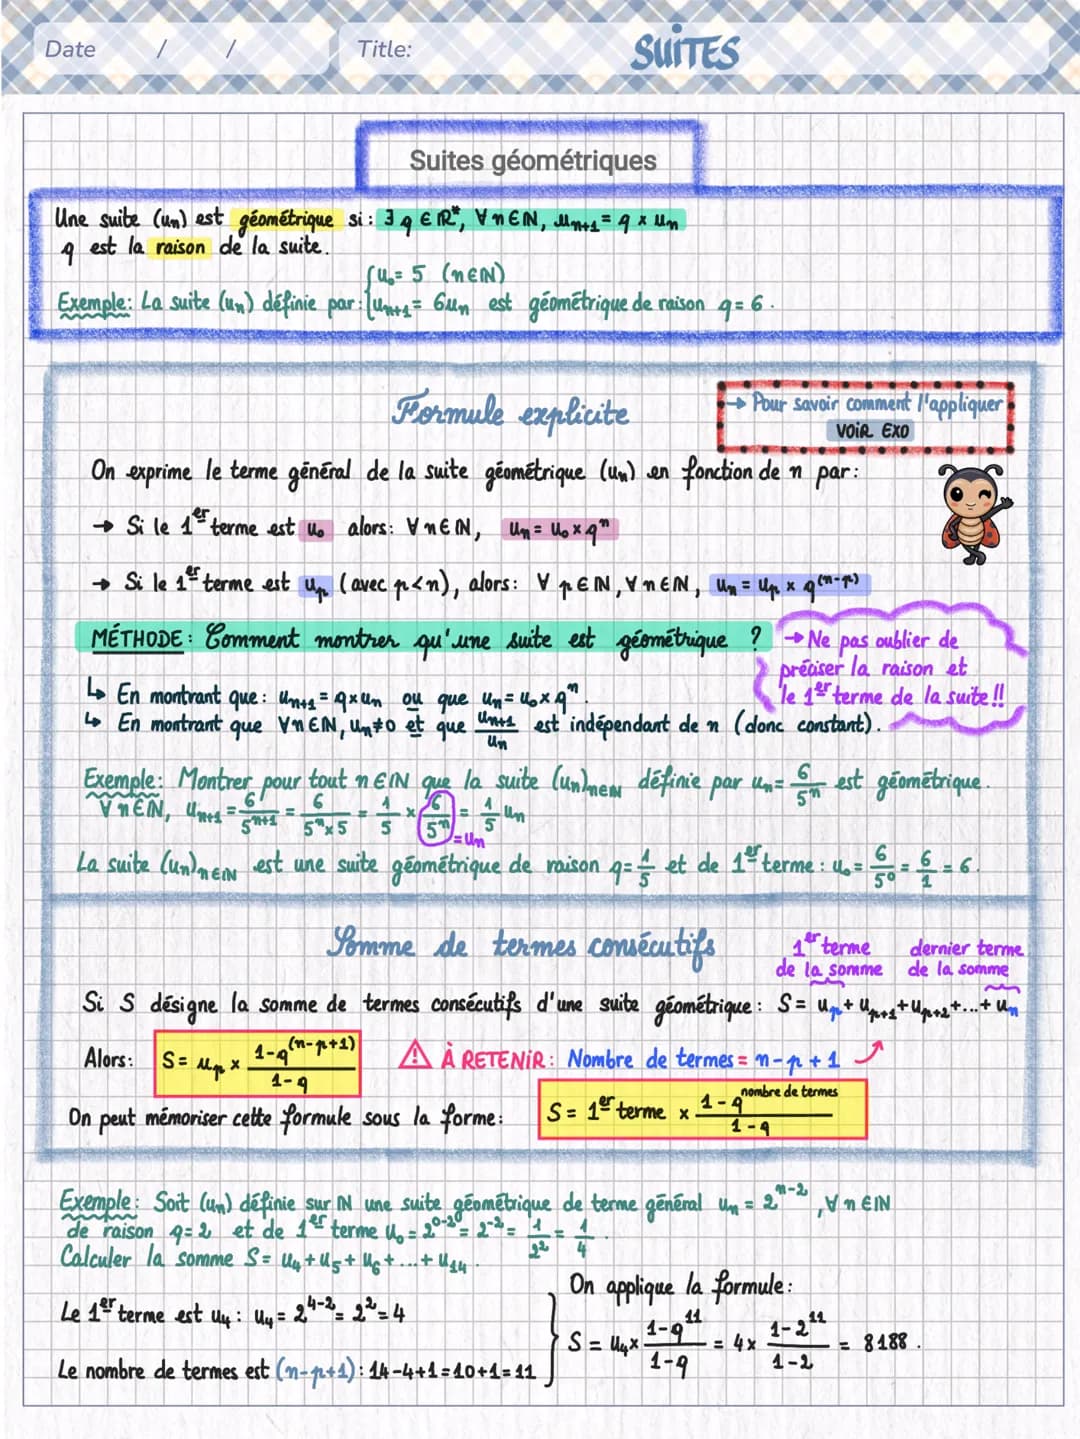 Date / / Title: SUITES
Suites géométriques
Une suite (uₙ) est géométrique si : ∃ q ∈ ℝ*, ∀ n ∈ ℕ, uₙ₊₁ = q × uₙ
q est la raison de la suite.
Exemple : La suite (uₙ) définie par : { u₀ = 5 (n ∈ ℕ)
uₙ₊₁ = 6uₙ est géométrique de raison q = 6.
Formule explicite
→ Pour savoir comment l'appliquer
VOIR EXO
On exprime le terme général de la suite géométrique (uₙ) en fonction de n par :
→ Si le 1er terme est u₀ alors : ∀ n ∈ ℕ, uₙ = u₀ × qⁿ
→ Si le 1er terme est uₚ (avec p < n), alors : ∀ p ∈ ℕ, ∀ n ∈ ℕ, uₙ = uₚ × q⁽ⁿ⁻ᵖ⁾
MÉTHODE : Comment montrer qu'une suite est géométrique ?
→ Ne pas oublier de
préciser la raison et
le 1er terme de la suite !!
↳ En montrant que : uₙ₊₁ = q × uₙ ou que uₙ = u₀ × qⁿ.
↳ En montrant que ∀ n ∈ ℕ, uₙ ≠ 0 et que uₙ₊₁/uₙ est indépendant de n (donc constant).
Exemple : Montrer pour tout n ∈ ℕ que la suite (uₙ)n∈ℕ définie par uₙ = 6/5ⁿ est géométrique.
∀ n ∈ ℕ, uₙ₊₁ = 6/5ⁿ⁺¹ = 6/(5ⁿ × 5) = 1/5 × 6/5ⁿ = 1/5 uₙ
= uₙ
La suite (uₙ)n∈ℕ est une suite géométrique de raison q = 1/5 et de 1er terme : u₀ = 6/5⁰ = 6/1 = 6.
Somme de termes consécutifs
1er terme de la somme
dernier terme de la somme
Si S désigne la somme de termes consécutifs d'une suite géométrique : S = uₚ + uₚ₊₁ + uₚ₊₂ + ... + uₙ
Alors : S = uₚ × (1 - q⁽ⁿ⁻ᵖ⁺¹⁾)/(1 - q)
⚠ À RETENIR : Nombre de termes = n - p + 1
On peut mémoriser cette formule sous la forme : S = 1er terme × (1 - q^nombre de termes)/(1 - q)
Exemple : Soit (uₙ) définie sur ℕ une suite géométrique de terme général uₙ = 2ⁿ⁻², ∀ n ∈ ℕ
de raison q = 2 et de 1er terme u₀ = 2⁰⁻² = 2⁻² = 1/2² = 1/4.
Calculer la somme S = u₄ + u₅ + u₆ + ... + u₁₄.
Le 1er terme est u₄ : u₄ = 2⁴⁻² = 2² = 4
Le nombre de termes est (n-p+1) : 14-4+1 = 10+1 = 11
On applique la formule :
S = u₄ × (1 - q¹¹)/(1 - q) = 4 × (1 - 2¹¹)/(1 - 2) = 8188.